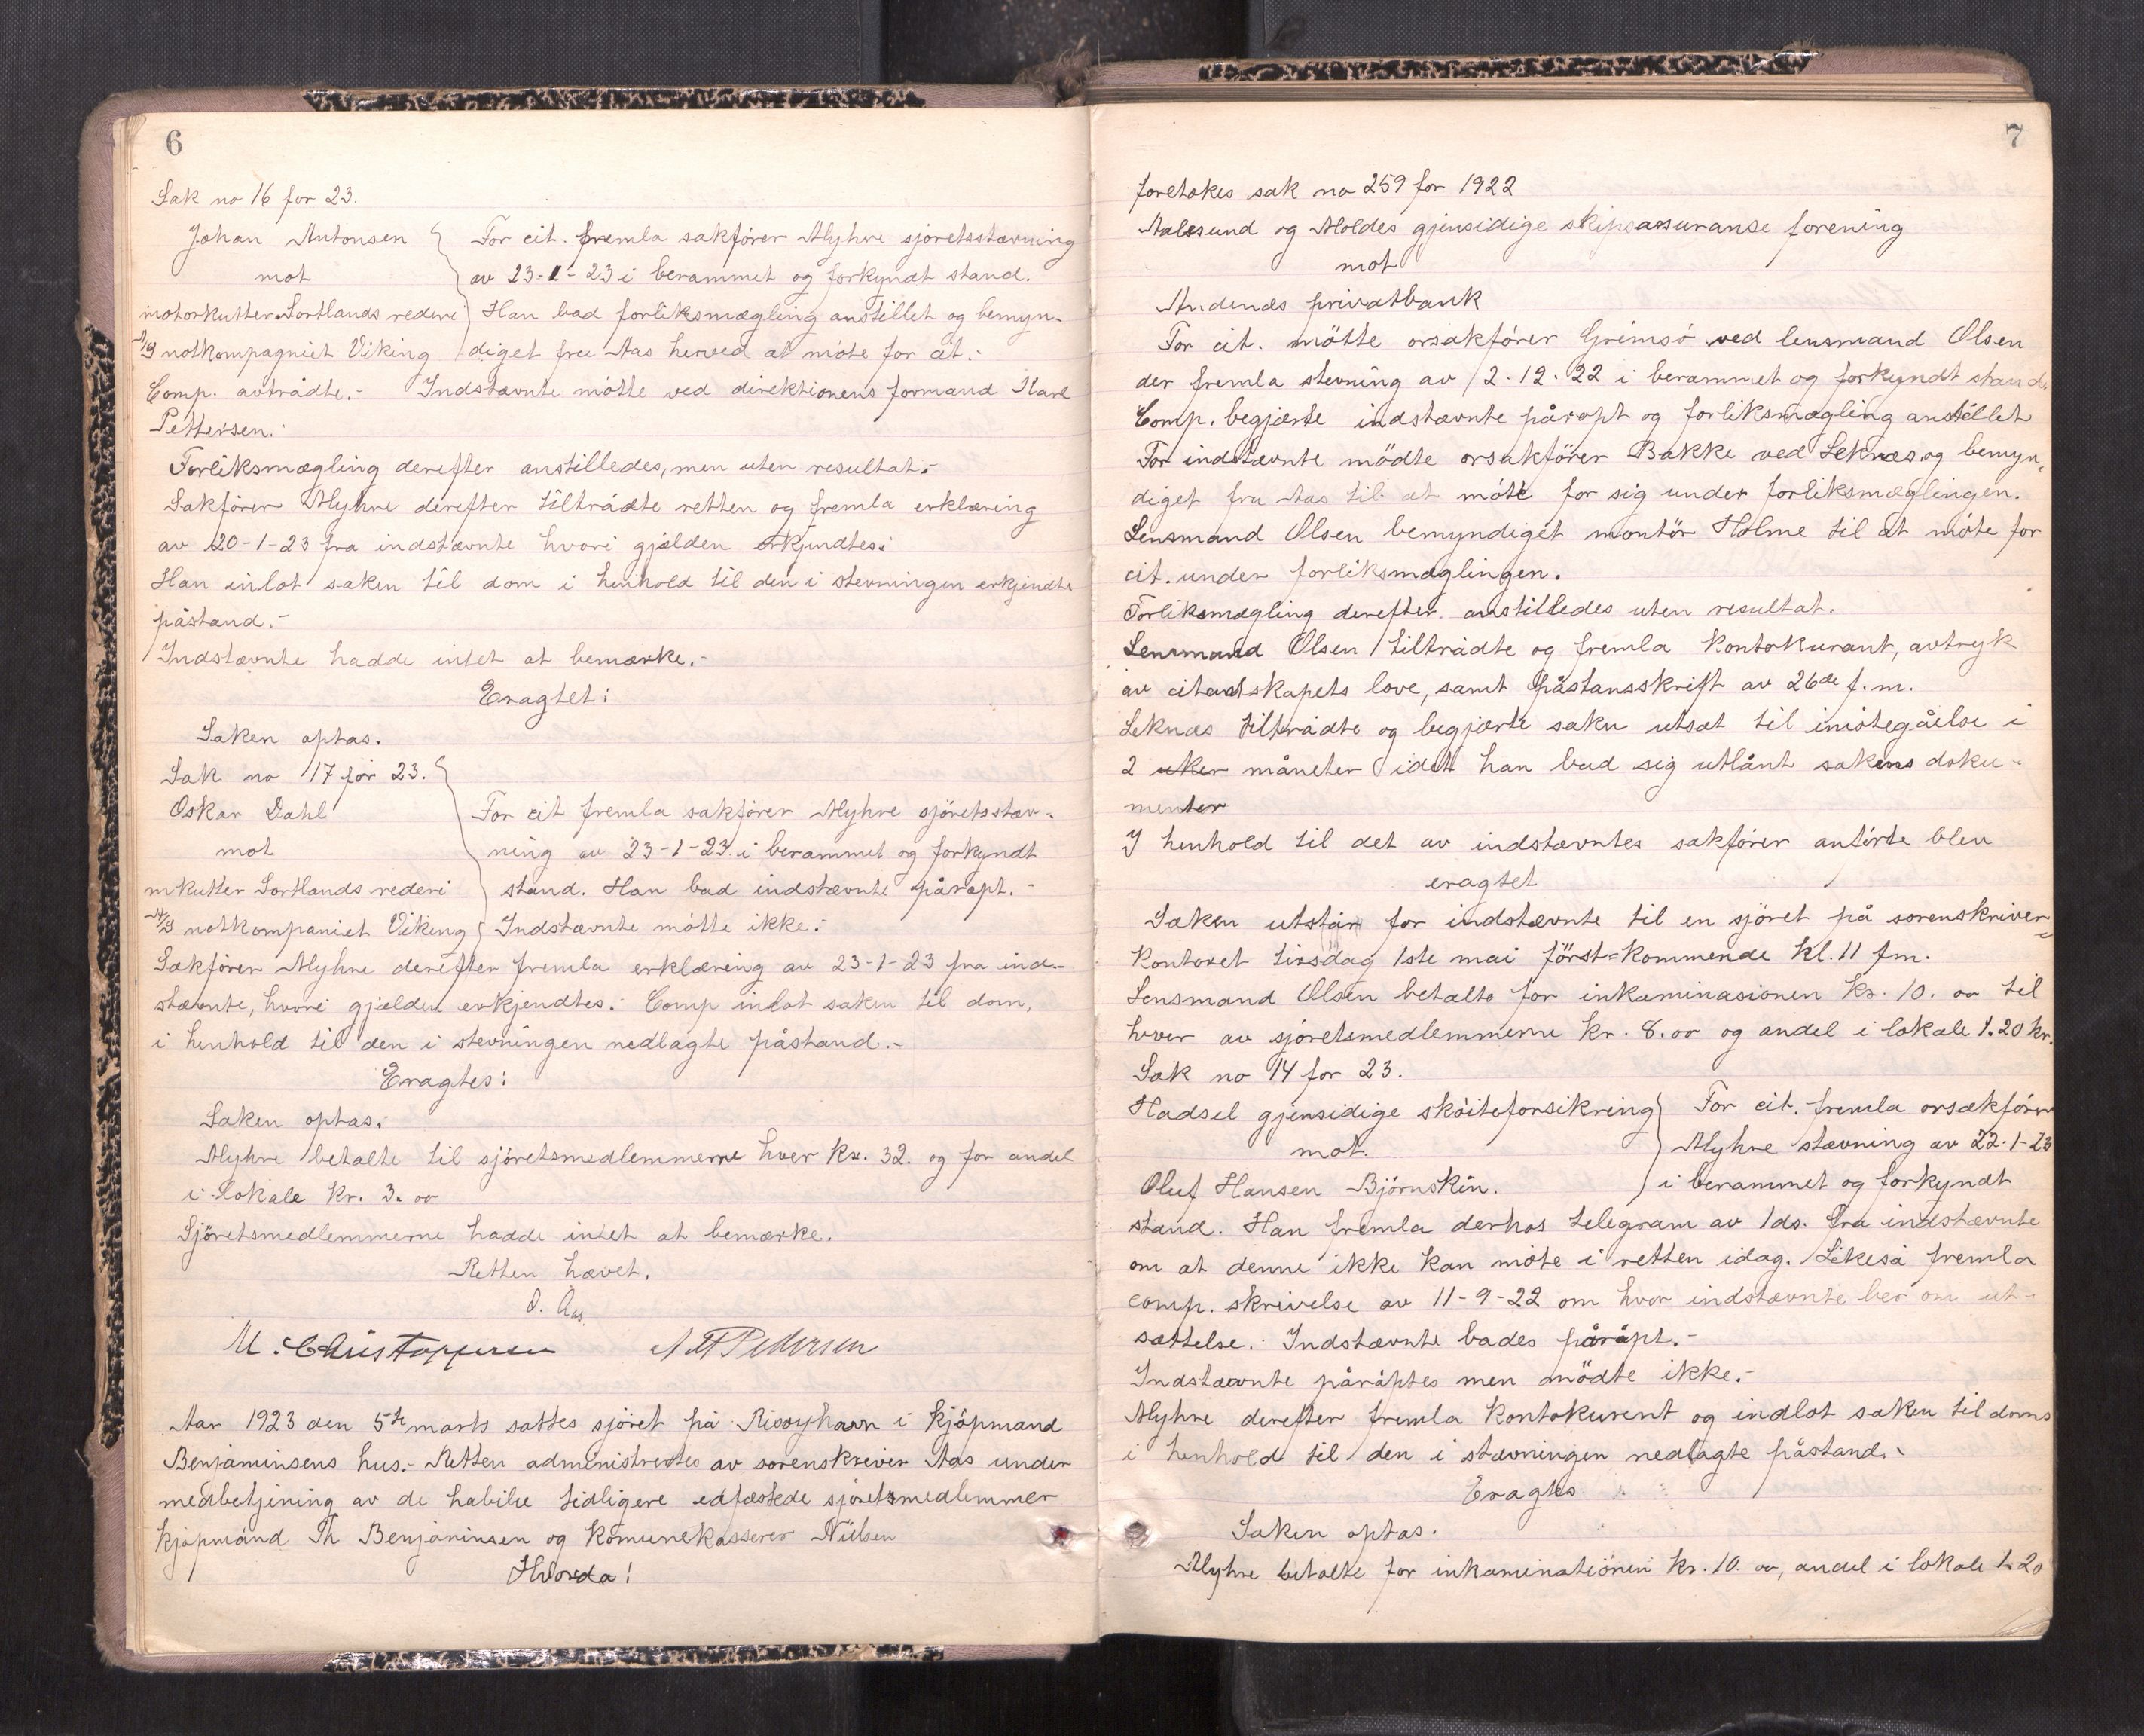 6
Sak no 16 for 23.
Johan Antonsen
mot
motorkutter Sortlands rederi
A/S notkompagniet Viking
For cit. fremla sakfører Myhre sjøretsstævning
av 23-1-23 i berammet og forkyndt stand.
Han bad forliksmægling anstillet og bemyn-
diget fru Aas herved at møte for cit.-
Comp. avtrådte.- Indstævnte møtte ved direktionens formand Karl
Pettersen.-
Forliksmægling derefter anstilledes, men uten resultat.-
Sakfører Myhre derefter tiltrådte retten og fremla erklæring
av 20-1-23 fra indstævnte hvori gjælden erkjendtes.-
Han inlot saken til dom i henhold til den i stevningen erkjendte
påstand.-
Indstævnte hadde intet at bemærke.-
Eragtet:
Saken optas.
Sak no 17 for 23.
Oskar Dahl
mot
mkutter Sortlands rederi
A/S notkompaniet Viking
For cit fremla sakfører Myhre sjøretsstæv-
ning av 23-1-23 i berammet og forkyndt
stand. Han bad indstævnte påropt.-
Indstævnte møtte ikke.-
Sakfører Myhre derefter fremla erklæring av 23-1-23 fra ind-
stævnte, hvori gjælden erkjendtes.- Comp inlot saken til dom,
i henhold til den i stevningen nedlagte påstand.-
Eragtes:
Saken optas.-
Myhre betalte til sjøretsmedlemmerne hver kr. 32. og for andel
i lokale kr. 3.00
Sjøretsmedlemmerne hadde intet at bemærke.
Retten hævet.
O. Aas
M. Christophersen A H Pedersen
Aar 1923 den 5te marts sattes sjøret på Risøyhavn i kjøpmand
Benjaminsens hus.- Retten administrertes av sorenskriver Aas under
medbetjening av de habile tidligere edfæstede sjøretsmedlemmer
kjøpmand Th Benjaminsen og komunekasserer Nilsen
Hvorda!
7
foretokes sak no 259 for 1922
Aalesund og Moldes gjensidige skipsassuranse forening
mot
Andenæs privatbank
For cit. møtte orsakfører Grimsø ved lensmand Olsen
der fremla stevning av 12.12.22 i berammet og forkyndt stand.
Comp. begjærte indstævnte påropt og forliksmægling anstillet
For indstævnte mødte orsakfører Bakke ved Leknæs og bemyn-
diget fru Aas til at møte for sig under forliksmæglingen.
Lensmand Olsen bemyndiget montør Holme til at møte for
cit. under forliksmæglingen.
Forliksmægling derefter anstilledes uten resultat.
Lensmand Olsen tiltrådte og fremla kontokurant, avtryk
av citantskapets love, samt påstansskrift av 26de f.m.
Leknæs tiltrådte og begjærte saken utsat til imøtegåelse i
2 uker måneter idet han bad sig utlånt sakens doku-
menter
I henhold til det av indstævntes sakfører anførte blev
eragtet
Saken utstår for indstævnte til en sjøret på sorenskriver-
kontoret tirsdag 1ste mai først=kommende kl. 11 fm.
Lensmand Olsen betalte for inkaminasionen kr. 10.00 til
hver av sjøretsmedlemmerne kr. 8.00 og andel i lokale 1.20 kr.
Sak no 14 for 23.
Hadsel gjensidige skøiteforsikring
mot.
Oluf Hansen Bjørnskin.
For cit. fremla orsakfører
Myhre stævning av 22-1-23
i berammet og forkyndt
stand. Han fremla derhos telegram av 1ds. fra indstævnte
om at denne ikke kan møte i retten idag. Likeså fremla
comp. skrivelse av 11-9-22 om hvor indstævnte ber om ut-
sættelse. Indstævnte bades påråpt.-
Indstævnte påråptes men mødte ikke.-
Myhre derefter fremla kontokurent og indlot saken til doms
i henhold til den i stævningen nedlagte påstand.-
Eragtes
Saken optas.
Myhre betalte for inkaminationen kr. 10.00, andel i lokale 1.20